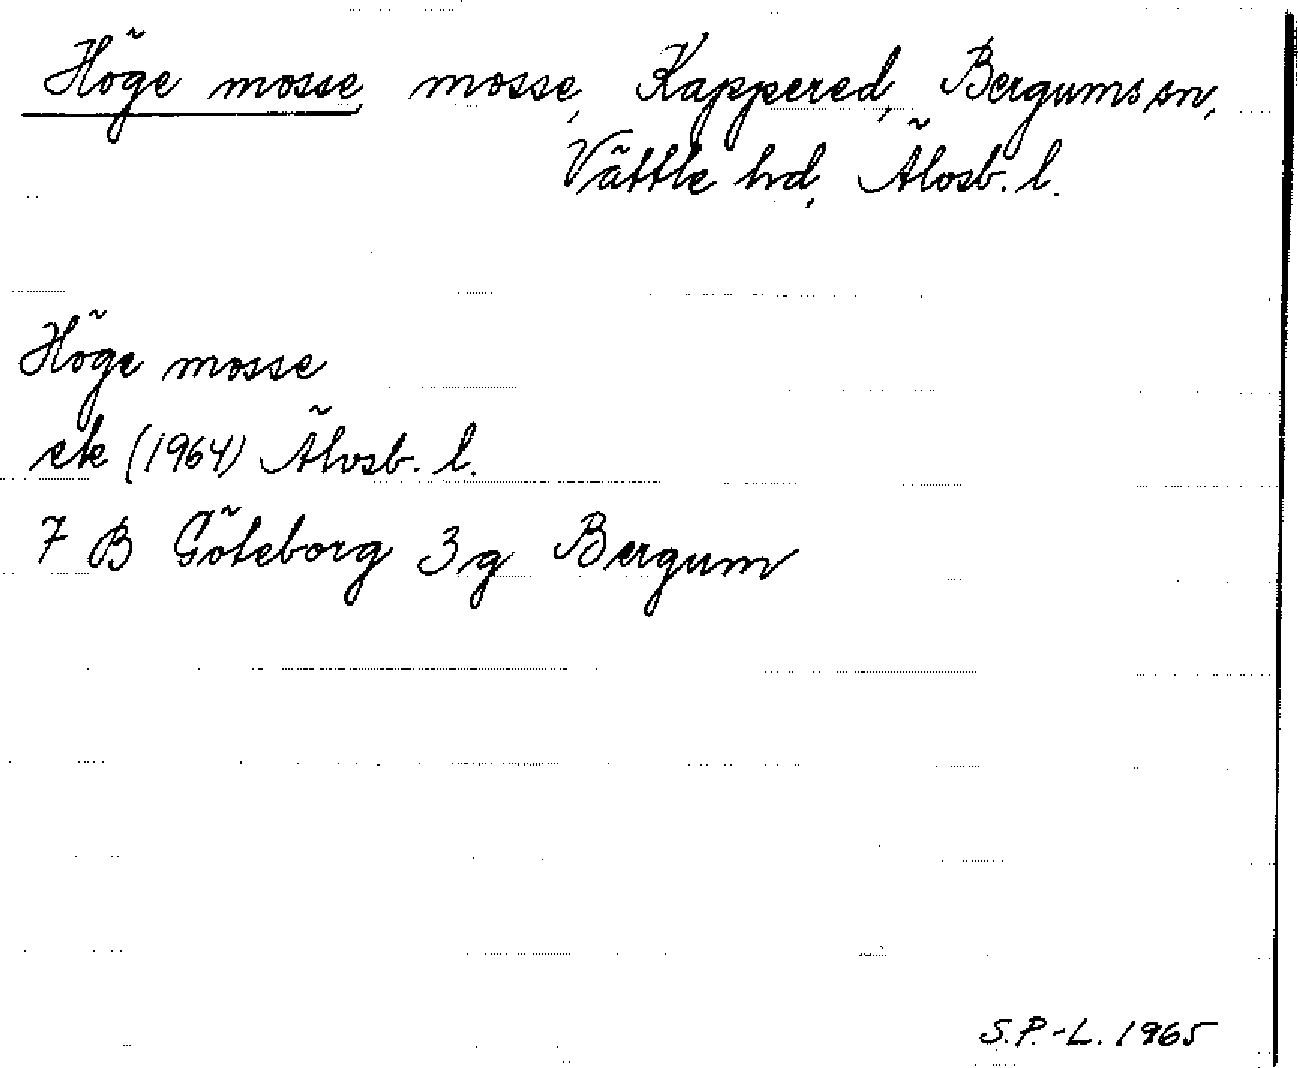 Höge mosse, mosse, Kappered, Bergums sn,
Vättle hd, Älvsb. l.
Höge mosse
ek (1964) Älvsb. l.
7 B Göteborg 3g Bergum
S.P.-L. 1965